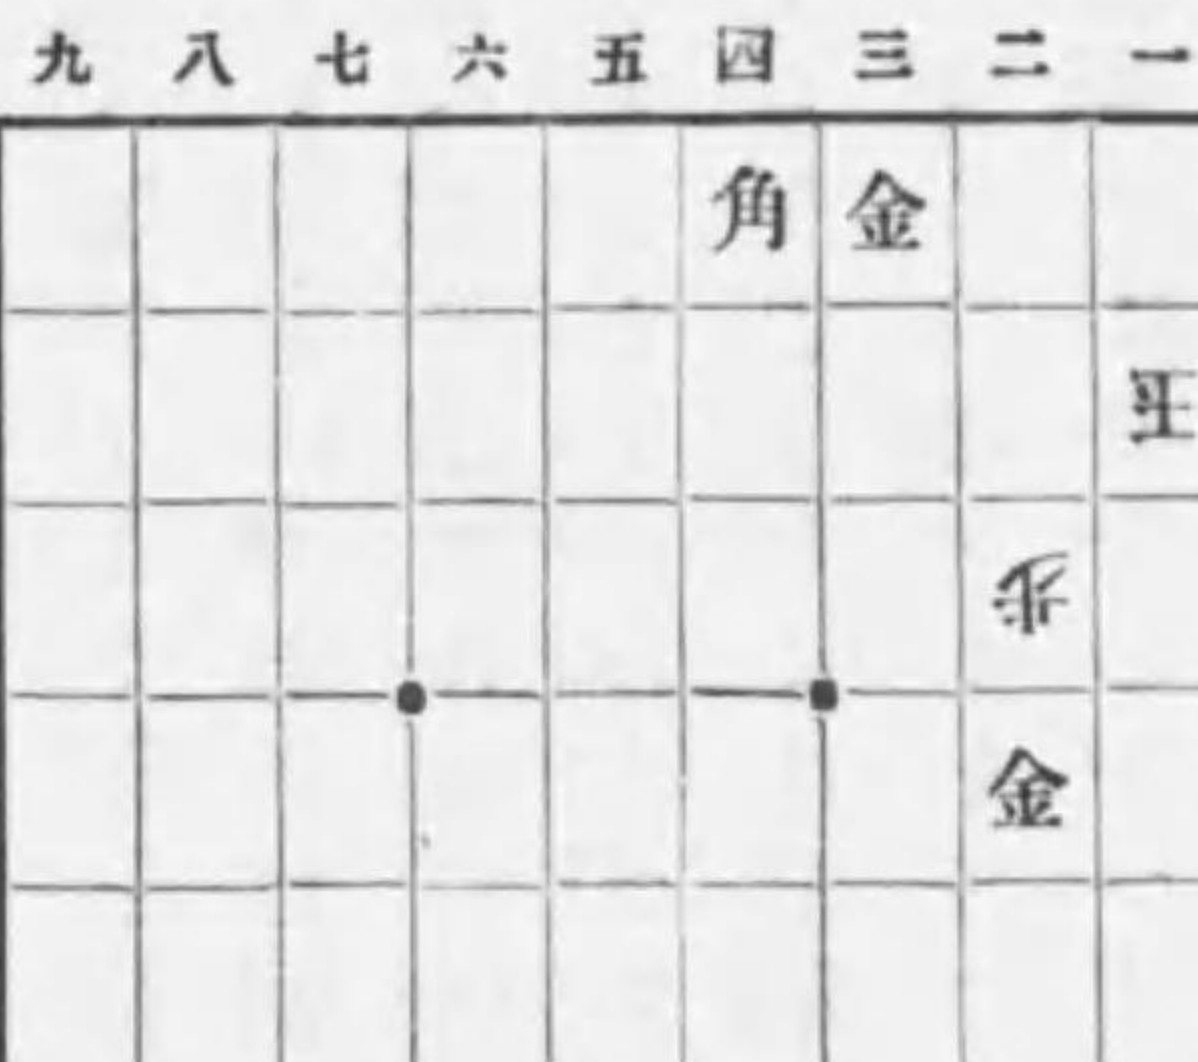 九 八 七 六 五 四 三 二 一
角 金
王
歩
金